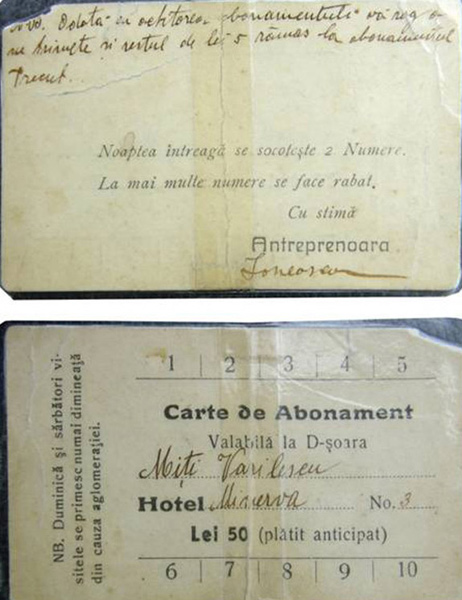 Nota. Odată cu achitarea abonamentului vă rog a
ne trimite și restul de lei 5 rămas la abonamentul
trecut.
Noaptea întreagă se socotește 2 Numere.
La mai multe numere se face rabat.
Cu stimă
Antreprenoara
Ionescu
1 | 2 | 3 | 4 | 5
Carte de Abonament
Valabilă la D-șoara
Miți Vasilescu
Hotel Minerva No. 3
Lei 50 (plătit anticipat)
6 | 7 | 8 | 9 | 10
NB. Duminică și sărbători vi-
sitele se primesc numai dimineață
din cauza aglomerației.